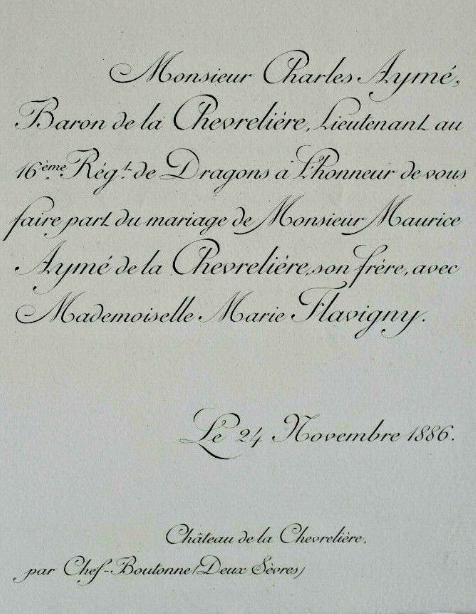 Monsieur Charles Aymé,
Baron de la Chevrelière, Lieutenant au
16ème Régt. de Dragons a l'honneur de vous
faire part du mariage de Monsieur Maurice
Aymé de la Chevrelière, son frère, avec
Mademoiselle Marie Flavigny.
Le 24 Novembre 1886.
Château de la Chevrelière,
par Chef-Boutonne (Deux Sèvres)